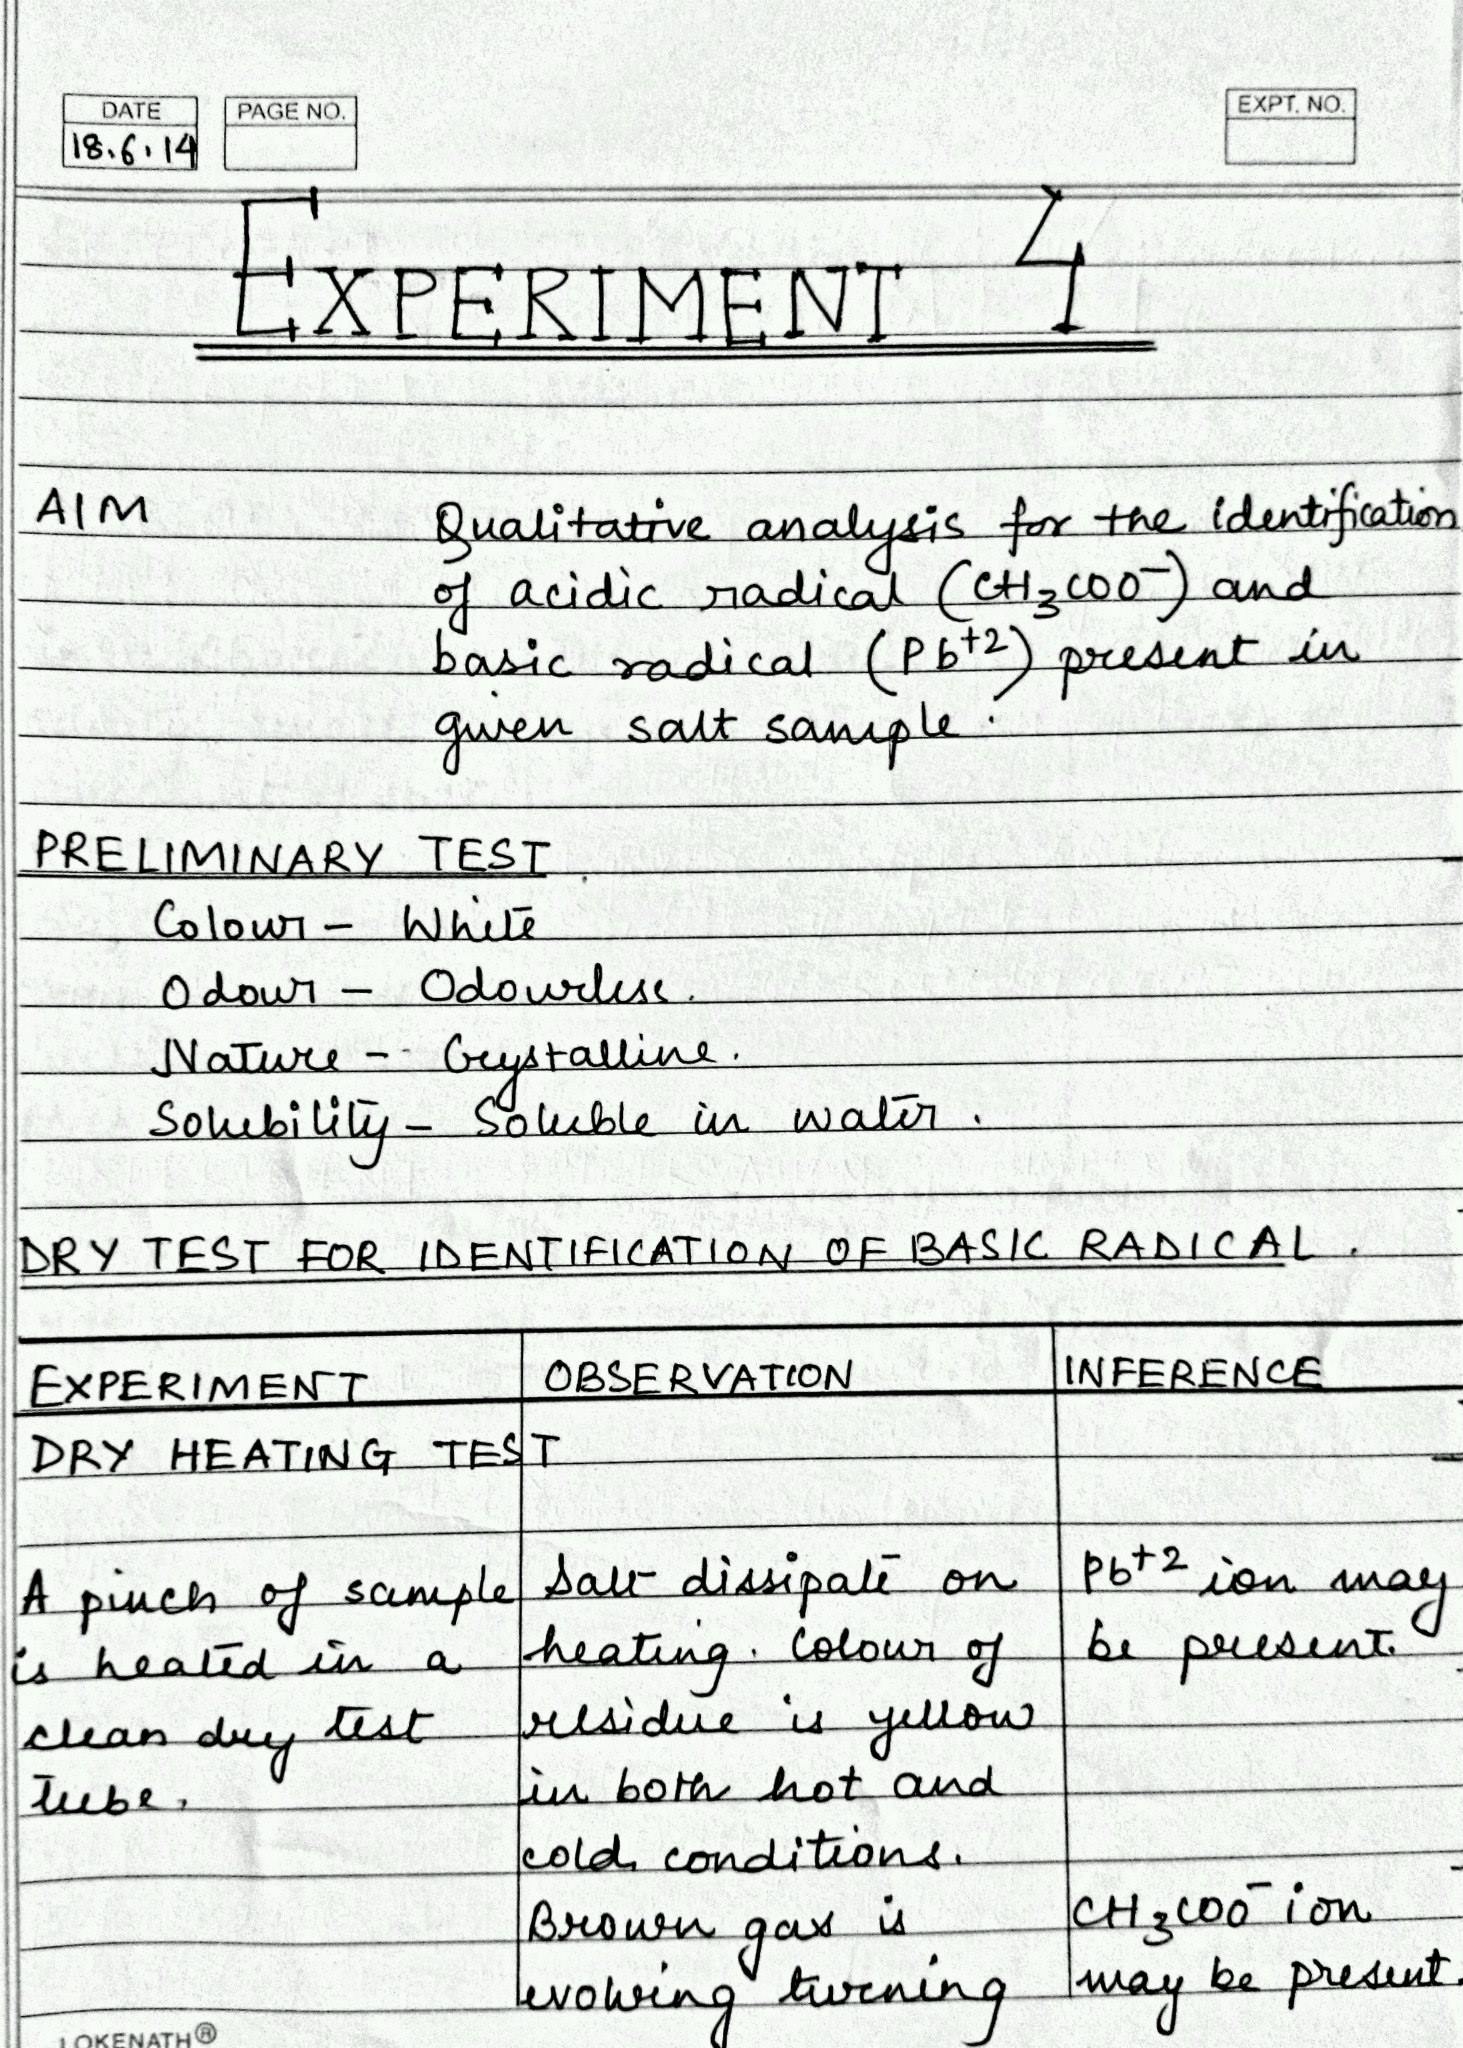 DATE PAGE NO. EXPT. NO.
18.6.14
EXPERIMENT 4
AIM Qualitative analysis for the identification
of acidic radical (CH₃COO⁻) and
basic radical (Pb⁺²) present in
given salt sample.
PRELIMINARY TEST
Colour - White
Odour - Odourless.
Nature - Crystalline.
Solubility - Soluble in water.
DRY TEST FOR IDENTIFICATION OF BASIC RADICAL.
EXPERIMENT OBSERVATION INFERENCE
DRY HEATING TEST
A pinch of sample
is heated in a
clean dry test
tube.
Salt dissipate on
heating. Colour of
residue is yellow
in both hot and
cold conditions.
Brown gas is
evolving turning
Pb⁺² ion may
be present.
CH₃COO⁻ ion
may be present.
LOKENATH®